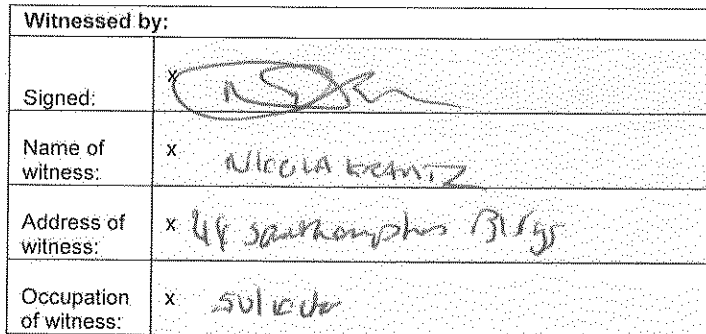 Witnessed by:
Signed: x
Name of witness: x NICOLA
Address of witness: x 48 Southampton Bldgs
Occupation of witness: x Solicitor